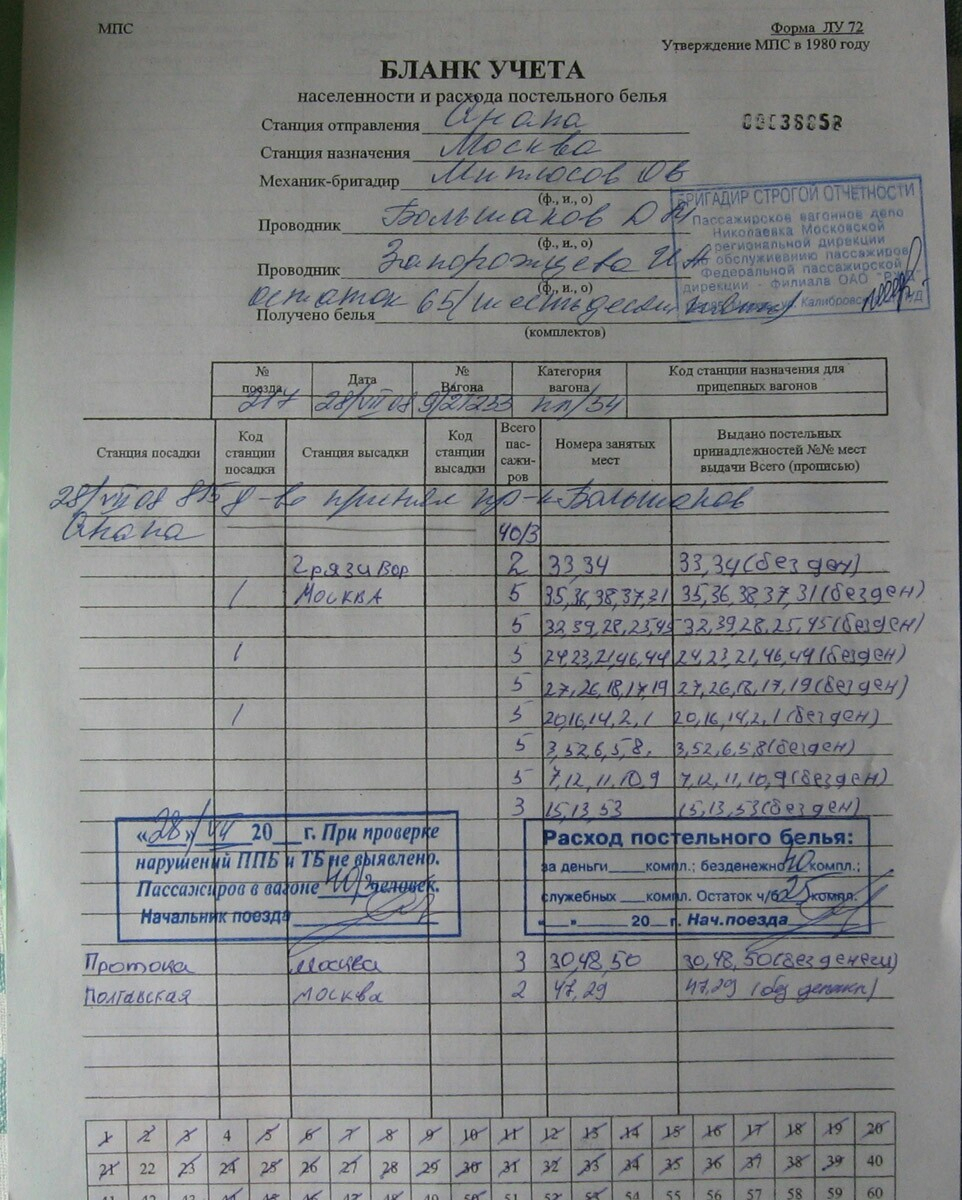 МПС
Форма ЛУ 72
Утверждение МПС в 1980 году
БЛАНК УЧЕТА
населенности и расхода постельного белья
Станция отправления Анапа
Станция назначения Москва
Механик-бригадир ОВ
(ф., и., о)
Проводник Большаков
(ф., и., о)
Проводник Запорожцева
(ф., и., о)
остаток 65
Получено белья
(комплектов)
БРИГАДИР СТРОГОЙ ОТЧЕТНОСТИ
Пассажирское вагонное депо
Николаевка Московской
региональной дирекции
по обслуживанию пассажиров
Федеральной пассажирской
дирекции - филиала ОАО "РЖД"
№ поезда Дата № Вагона Категория вагона Код станции назначения для прицепных вагонов
217 28/VII 08 9/21233 пл/54
Станция посадки Код станции посадки Станция высадки Код станции высадки Всего пас-сажи-ров Номера занятых мест Выдано постельных принадлежностей №№ мест выдачи Всего (прописью)
28/VII 08 8 д-во принял пр-к Большаков
Анапа 40/3
Грязи Вор 2 33,34 33,34 (без ден)
1 Москва 5 35,36,38,37,31 35,36,38,37,31 (без ден)
5 32,39,28,25,45 32,39,28,25,45 (без ден)
1 5 24,23,21,46,44 24,23,21,46,44 (без ден)
5 27,26,18,17,19 27,26,18,17,19 (без ден)
1 5 20,16,14,2,1 20,16,14,2,1 (без ден)
5 3,52,6,5,8, 3,52,6,5,8 (без ден)
5 7,12,11,10,9 7,12,11,10,9 (без ден)
3 15,13,53 15,13,53 (без ден)
«28» VII 20__г. При проверке
нарушений ППБ и ТБ не выявлено.
Пассажиров в вагоне 40/3 человек.
Начальник поезда
Расход постельного белья:
за деньги____компл.; безденежно 40 компл.;
служебных ___компл. Остаток ч/б 25 компл.
20__г. Нач.поезда
Протока Москва 3 30,48,50 30,48,50 (без денег)
Полтавская Москва 2 47,29 47,29
1 2 3 4 5 6 7 8 9 10 11 12 13 14 15 16 17 18 19 20
21 22 23 24 25 26 27 28 29 30 31 32 33 34 35 36 37 38 39 40